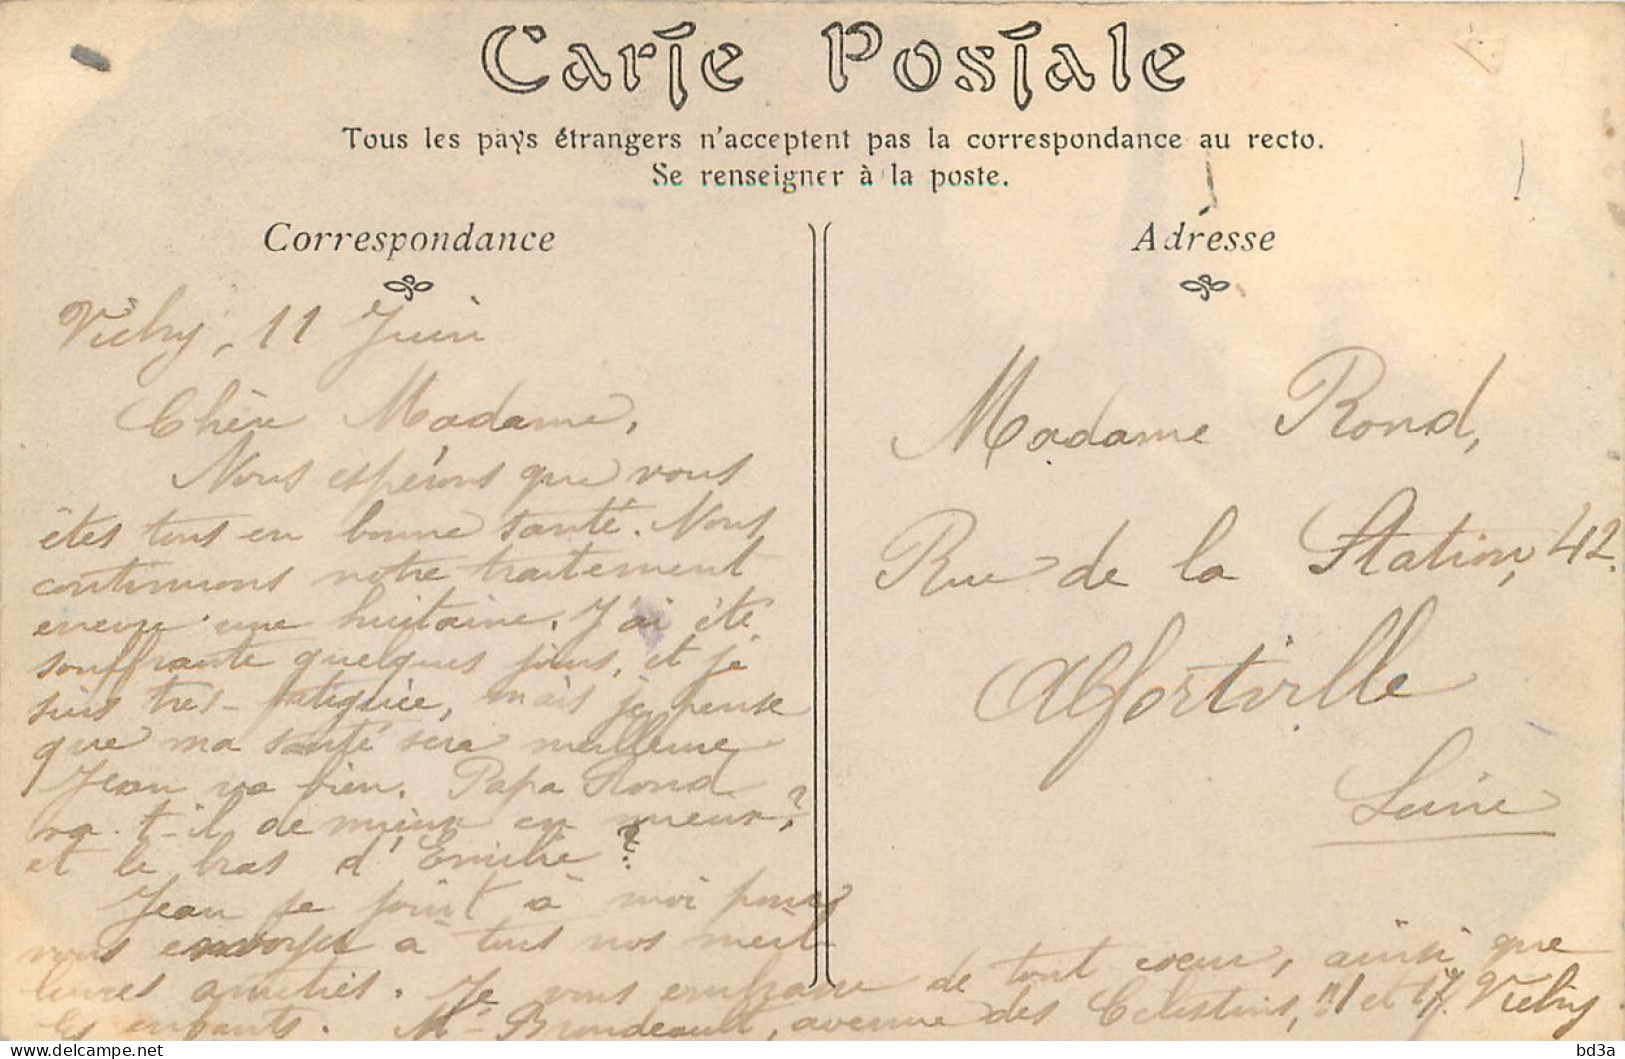 Carte Postale
Tous les pays étrangers n'acceptent pas la correspondance au recto.
Se renseigner à la poste.
Correspondance
Vichy, 11 Juin
Chère Madame,
Nous espérons que vous
êtes tous en bonne santé. Nous
continuons notre traitement
encore une huitaine. J'ai été
souffrante quelques jours, et je
suis très-fatiguée, mais je pense
que ma santé sera meilleure
Jean va bien. Papa Rond
va-t-il de mieux en mieux?
et le bras d'Emilie?
Jean se joint à moi pour
vous envoyer à tous nos meil-
leures amitiés. Je vous embrasse de tout cœur, ainsi que
les enfants. Mme Brundeault, avenue des Célestins, 11 et 17. Vichy
Adresse
Madame Rond,
Rue de la Station, 42.
Alfortville
Seine
bd3a